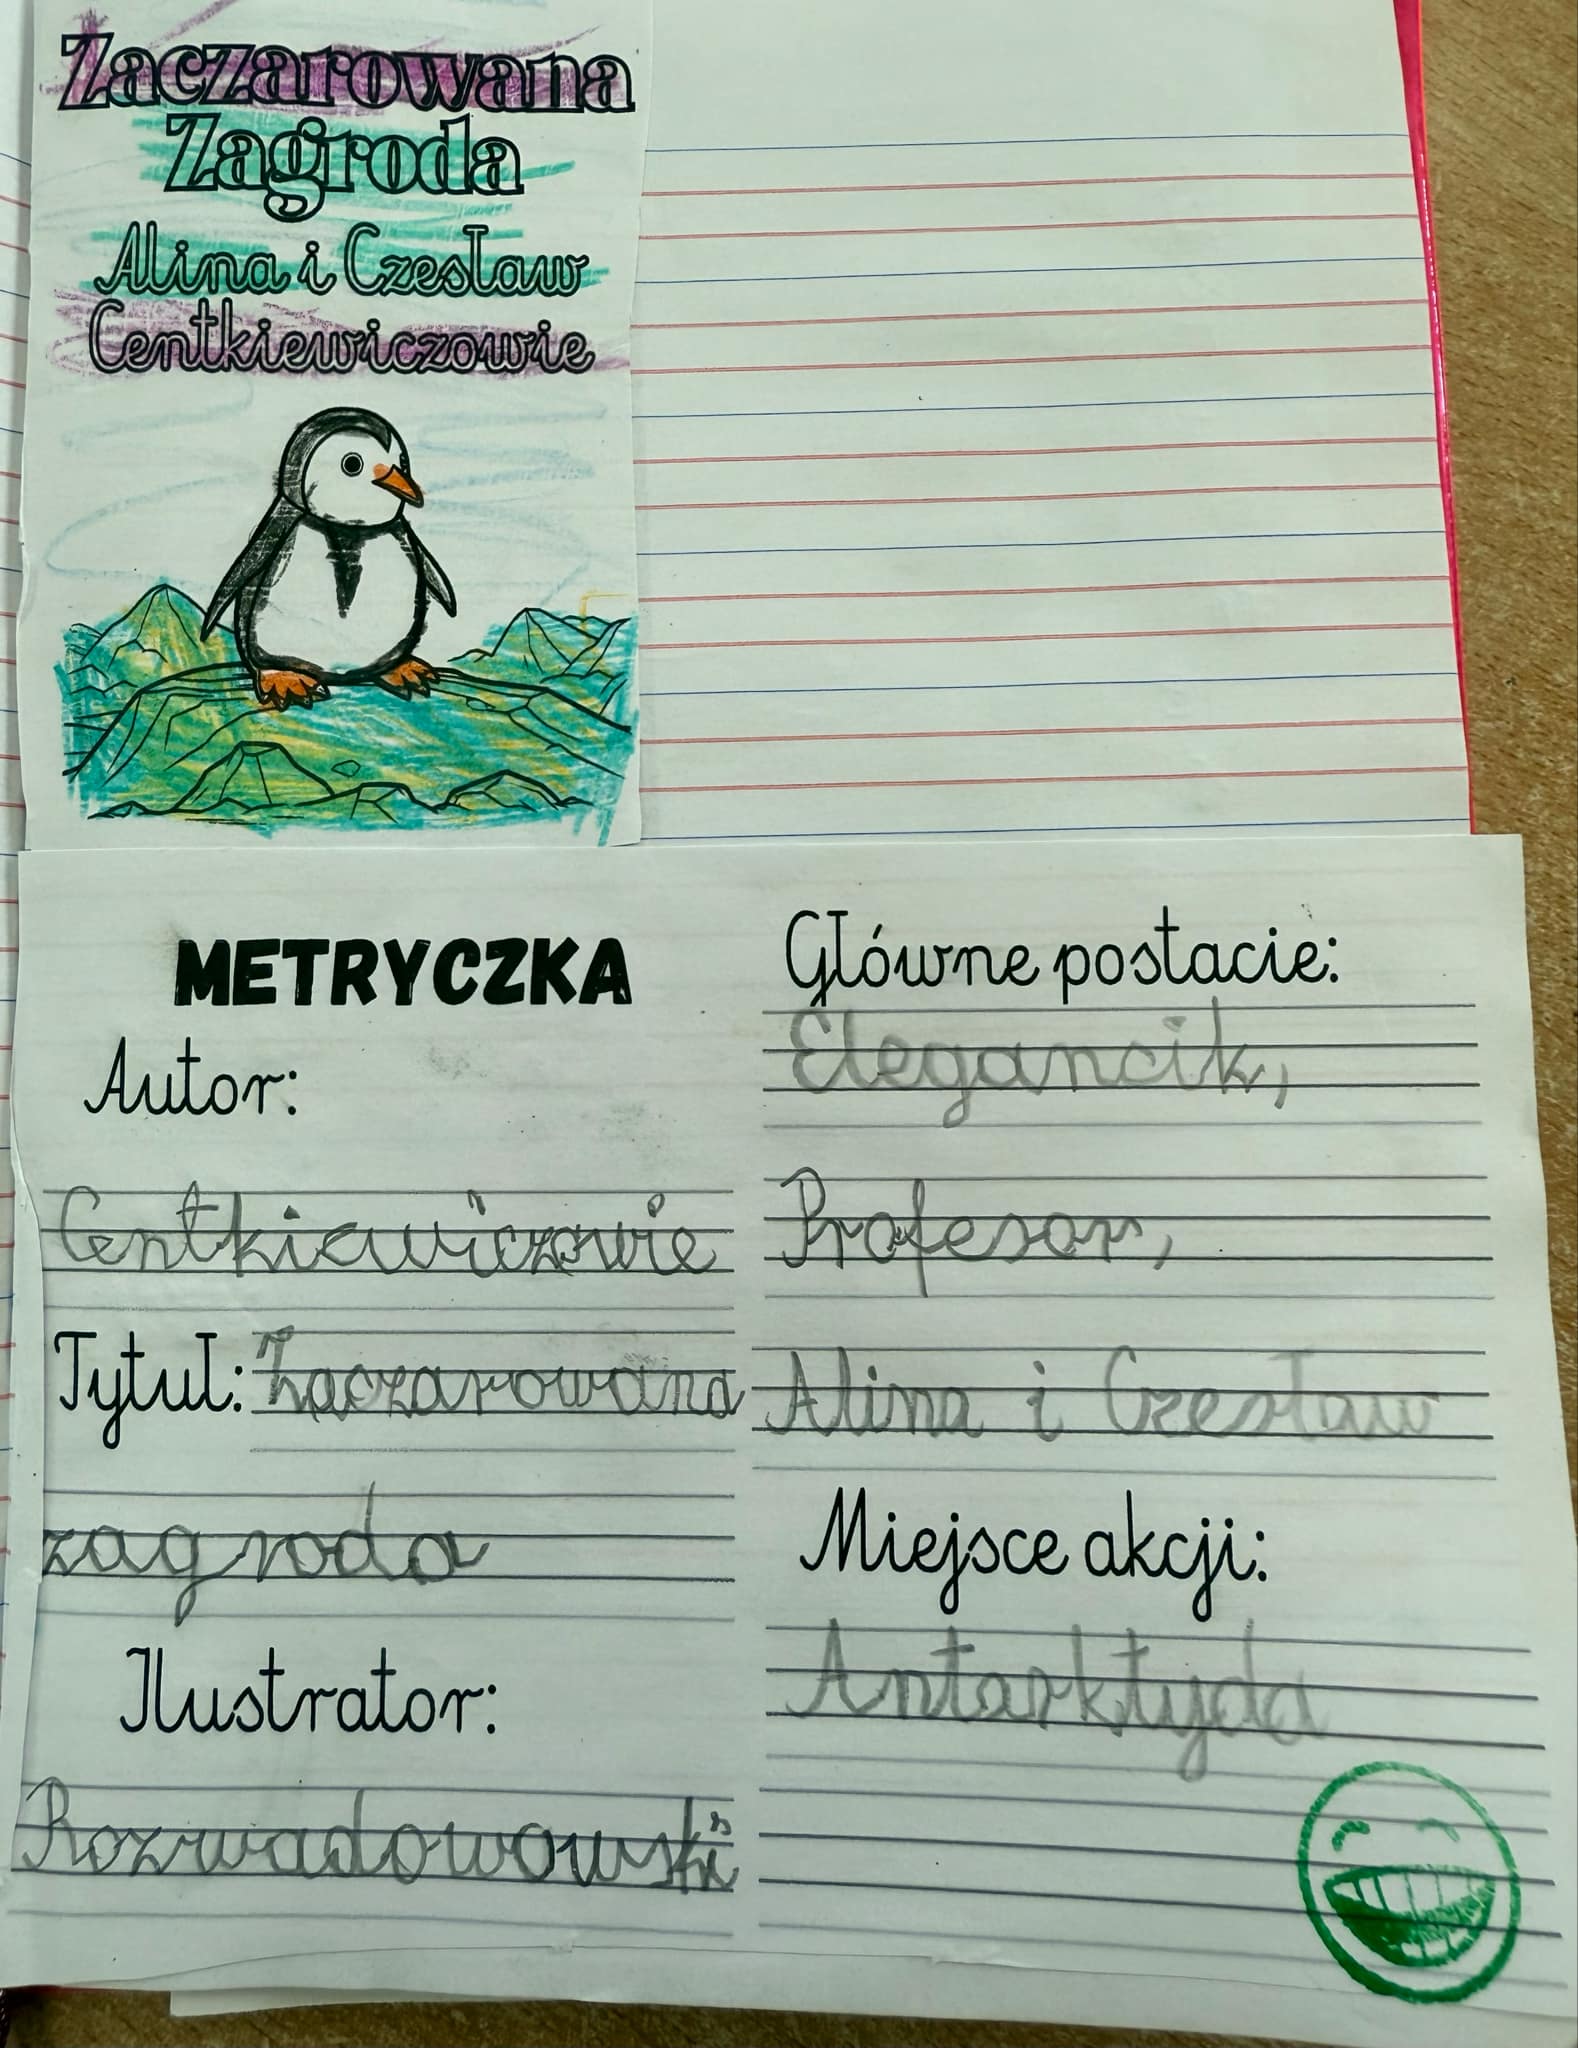 Zaczarowana
Zagroda
Alina i Czesław
Centkiewiczowie
METRYCZKA
Autor:
Centkiewiczowie
Tytuł: Zaczarowana
zagroda
Ilustrator:
Rozwadowowski
Główne postacie:
Elegancik,
Profesor,
Alina i Czesław
Miejsce akcji:
Antarktyda